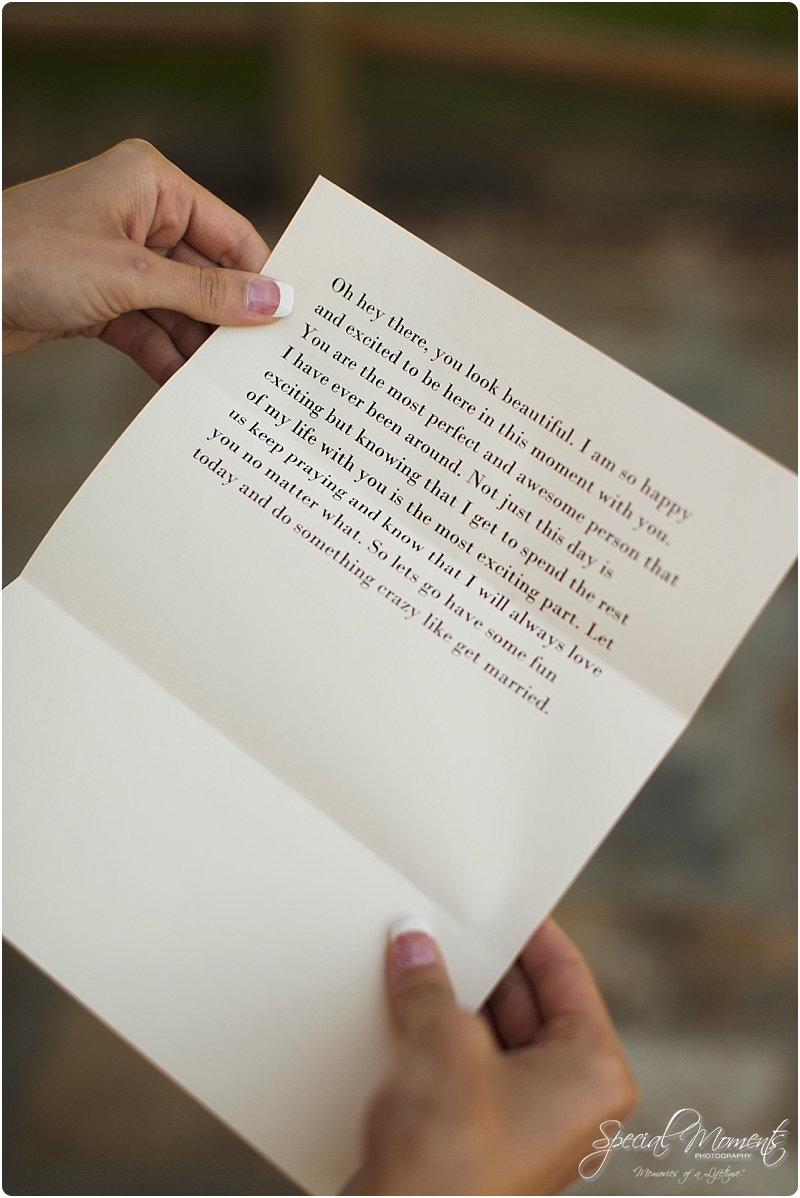 Oh hey there, you look beautiful. I am so happy
and excited to be here in this moment with you.
You are the most perfect and awesome person that
I have ever been around. Not just this day is
exciting but knowing that I get to spend the rest
of my life with you is the most exciting part. Let
us keep praying and know that I will always love
you no matter what. So lets go have some fun
today and do something crazy like get married.
Special Moments
PHOTOGRAPHY
"Memories of a Lifetime."